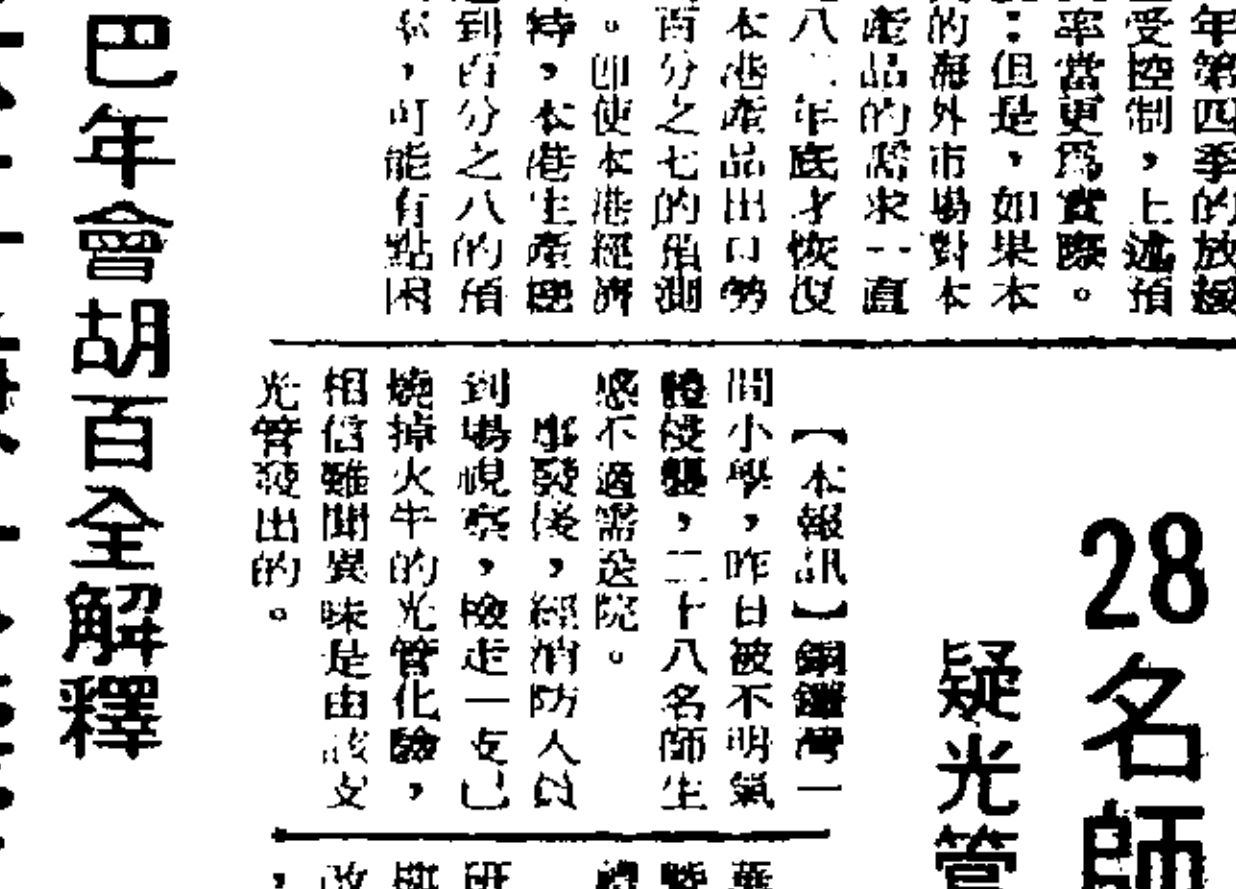 年第四季的放緩
受控制，上述預
率當更爲實際。
：但是，如果本
的海外市場對本
產品的需求一直
八二年底才恢復
本港產品出口勢
百分之七的預測
。即使本港經濟
時，本港生產總
到百分之八的預
，可能有點困
28名師
疑光管
【本報訊】銅鑼灣一
間小學，昨日被不明氣
體侵襲，二十八名師生
感不適需送院。
事發後，經消防人員
到場視察，檢走一支已
燒掉火牛的光管化驗，
相信難聞異味是由該支
光管發出的。
巴年會胡百全解釋
華
研
改
，